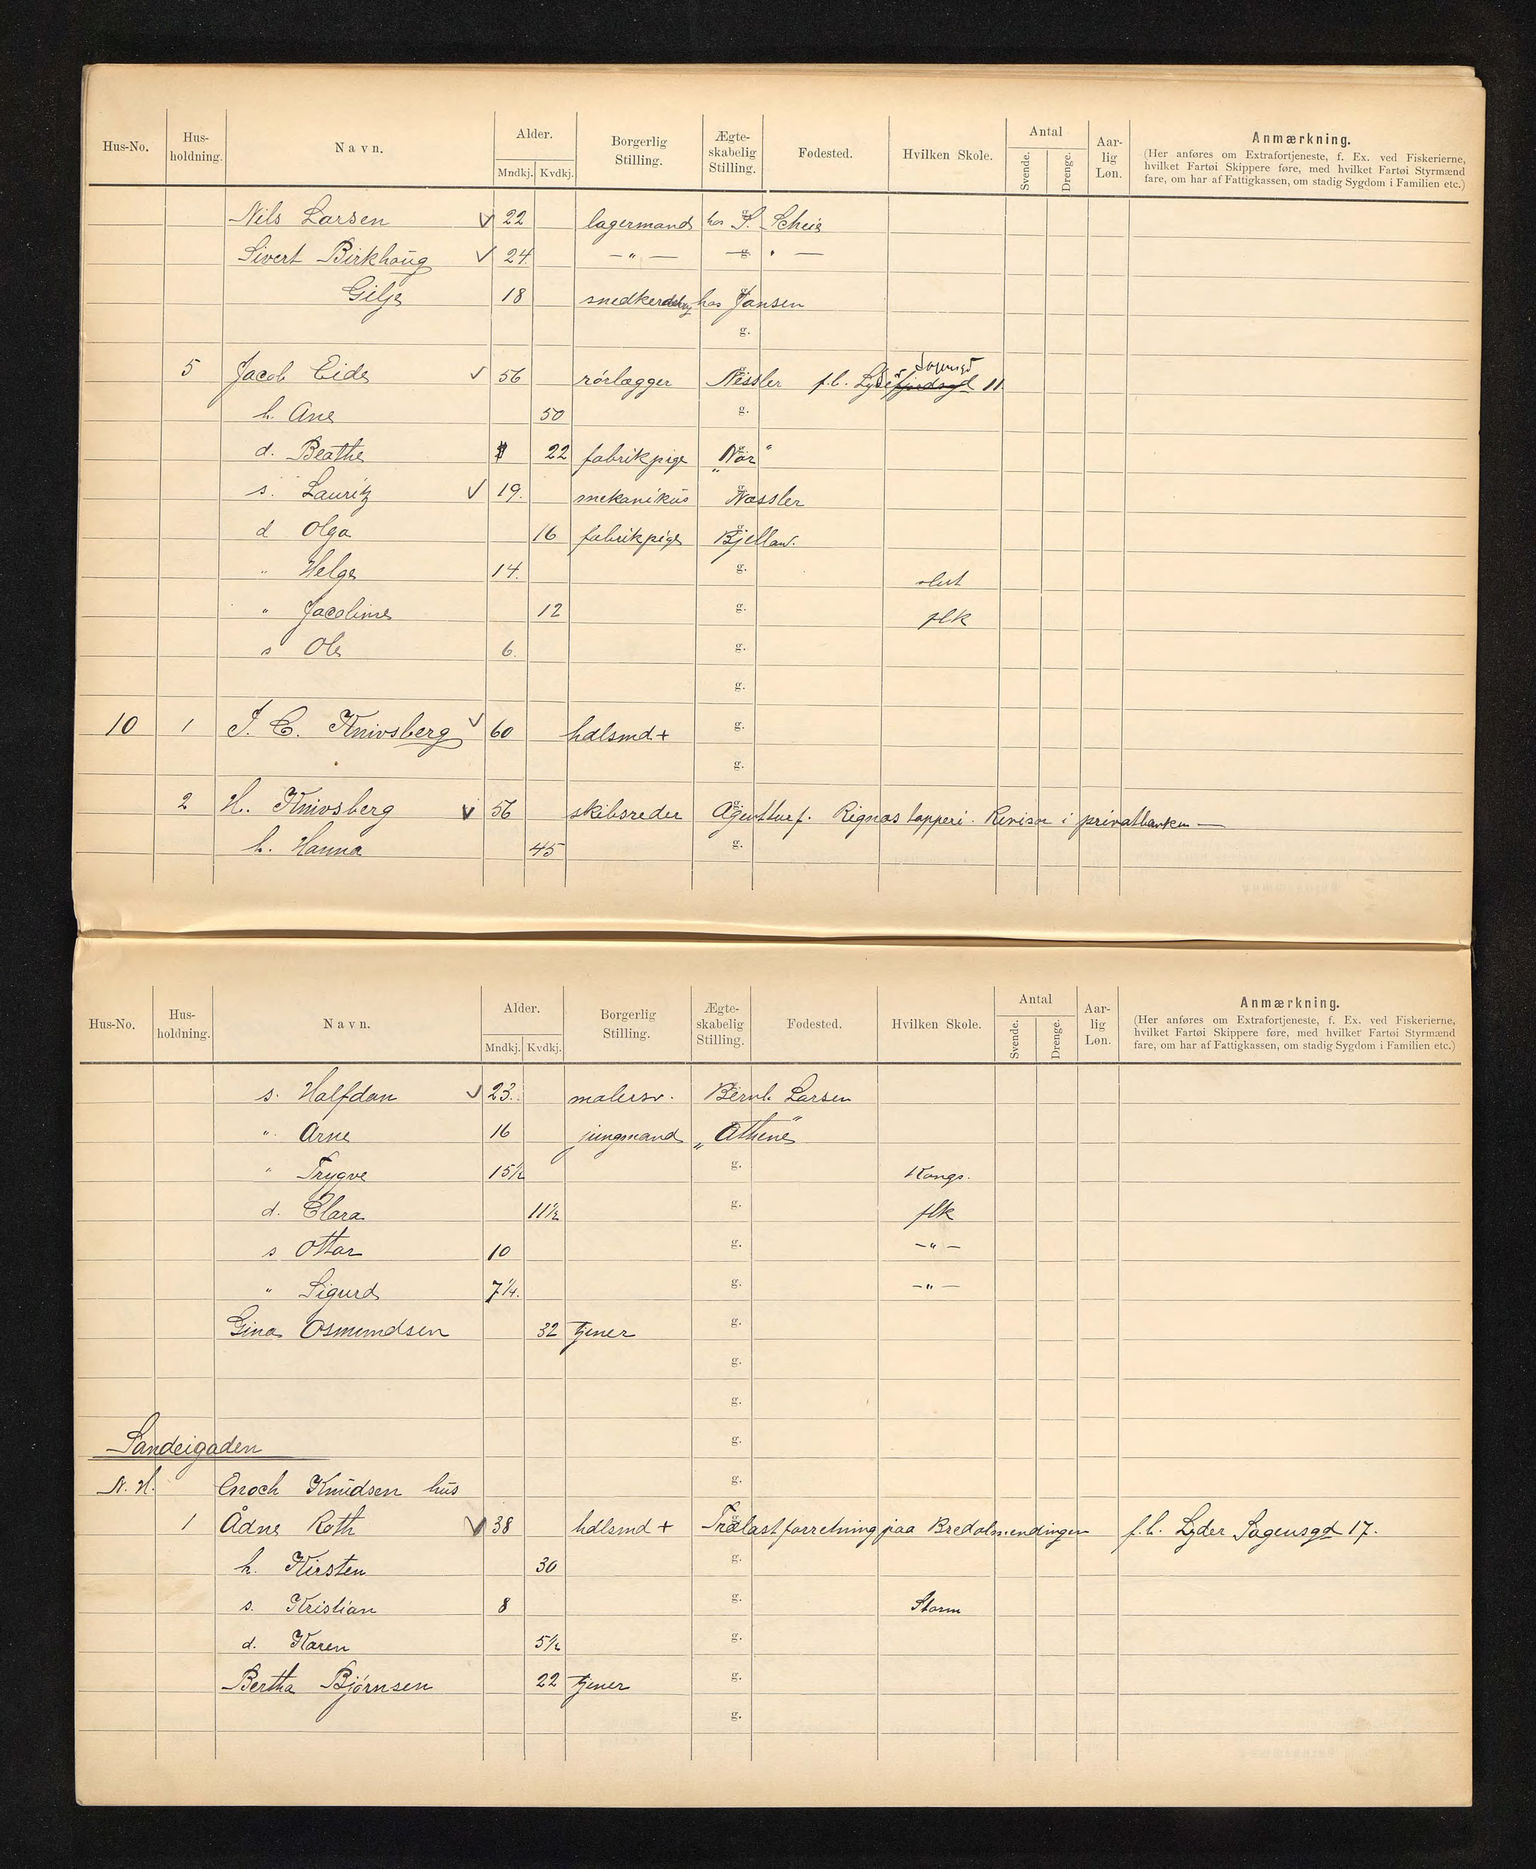 Hus-No. Hus-holdning. Navn. Alder. Mndkj. Kvdkj. Borgerlig Stilling. Ægte-skabelig Stilling. Fødested. Hvilken Skole. Antal Svende. Drenge. Aar-lig Løn. Anmærkning.
(Her anføres om Extrafortjeneste, f. Ex. ved Fiskerierne,
hvilket Fartøi Skippere føre, med hvilket Fartøi Styrmænd
fare, om har af Fattigkassen, om stadig Sygdom i Familien etc.)
Nils Larsen V 22 lagermand hos S. Scheie
Sivert Birkhoug V 24 — " — — " —
Gilje 18 hos Jansen
g.
5 Jacob Eide V 56 rörlægger Næssler f.b. 11
h. Ane 50 g.
d. Beathe 22 fabrikpige "Nor"
s. Lauritz V 19. mekanikus Næssler
d Olga 16 fabrikpige Bjelland.
" Helge 14. g.
" Jacoline 12 g. flk
s Ole 6. g.
g.
10 1 J. C. Knivsberg V 60 hdlsmd + g.
g.
2 H. Knivsberg V 56 skibsreder Agentturf. Rignæs tapperi. Revisor i privatbanken —
h. Hanna 45 g.
Hus-No. Hus-holdning. Navn. Alder. Mndkj. Kvdkj. Borgerlig Stilling. Ægte-skabelig Stilling. Fødested. Hvilken Skole. Antal Svende. Drenge. Aar-lig Løn. Anmærkning.
(Her anføres om Extrafortjeneste, f. Ex. ved Fiskerierne,
hvilket Fartøi Skippere føre, med hvilket Fartøi Styrmænd
fare, om har af Fattigkassen, om stadig Sygdom i Familien etc.)
s. Halfdan V 23. malersv. Bernh Larsen
" Arne 16 jungmand "Athene"
" Trygve 15½ g. Kongs.
d. Clara 11½ g. flk
s Ottar 10 g. — " —
" Sigurd 7¼. g. — " —
Gina Osmundsen 32 tjener g.
g.
g.
Sandeigaden g.
N. H. Enoch Knudsen hus g.
1 Ådne Roth V 38 hdlsmd + Trælastforretning paa Bredalmendingen f.b. Lyder Sagensgd 17.
h. Kirsten 30 g.
s. Kristian 8 g. Storm
d. Karen 5½ g.
Bertha Bjørnsen 22 tjener g.
g.